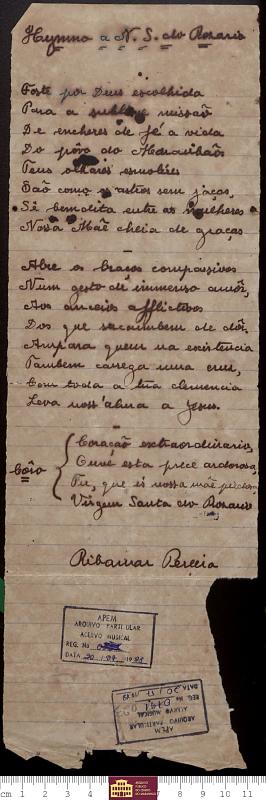 Hymno a N. S. do Rosario
Foste por Deus escolhida
Para a sublime missão
De encheres de fé a vida
Do povo do Maranhão
Teus olhares
São como os astros sem jaças,
Sê bemdita entre as mulheres
Nossa Mãe cheia de graças
Abre os braços compassivos
Num gesto de immenso amôr,
Aos anceios afflictivos
Dos que sucumbem de dôr.
Ampara quem na existencia
Tambem carega uma cruz,
Com toda a tua clemencia
Leva noss'alma a Jesus.
Côro
Coração extraordinario,
Ouve esta prece ardorosa,
Tu, que és nossa mãe
Virgem Santa do Rosario
Ribamar Pereira
APEM
ARQUIVO PARTICULAR
ACERVO MUSICAL
REG. No
DATA 20 / 1
APEM
ARQUIVO PARTICULAR
ACERVO MUSICAL
REG. No
DATA 20 /
cm 1 2 3 4 8 9 10 11